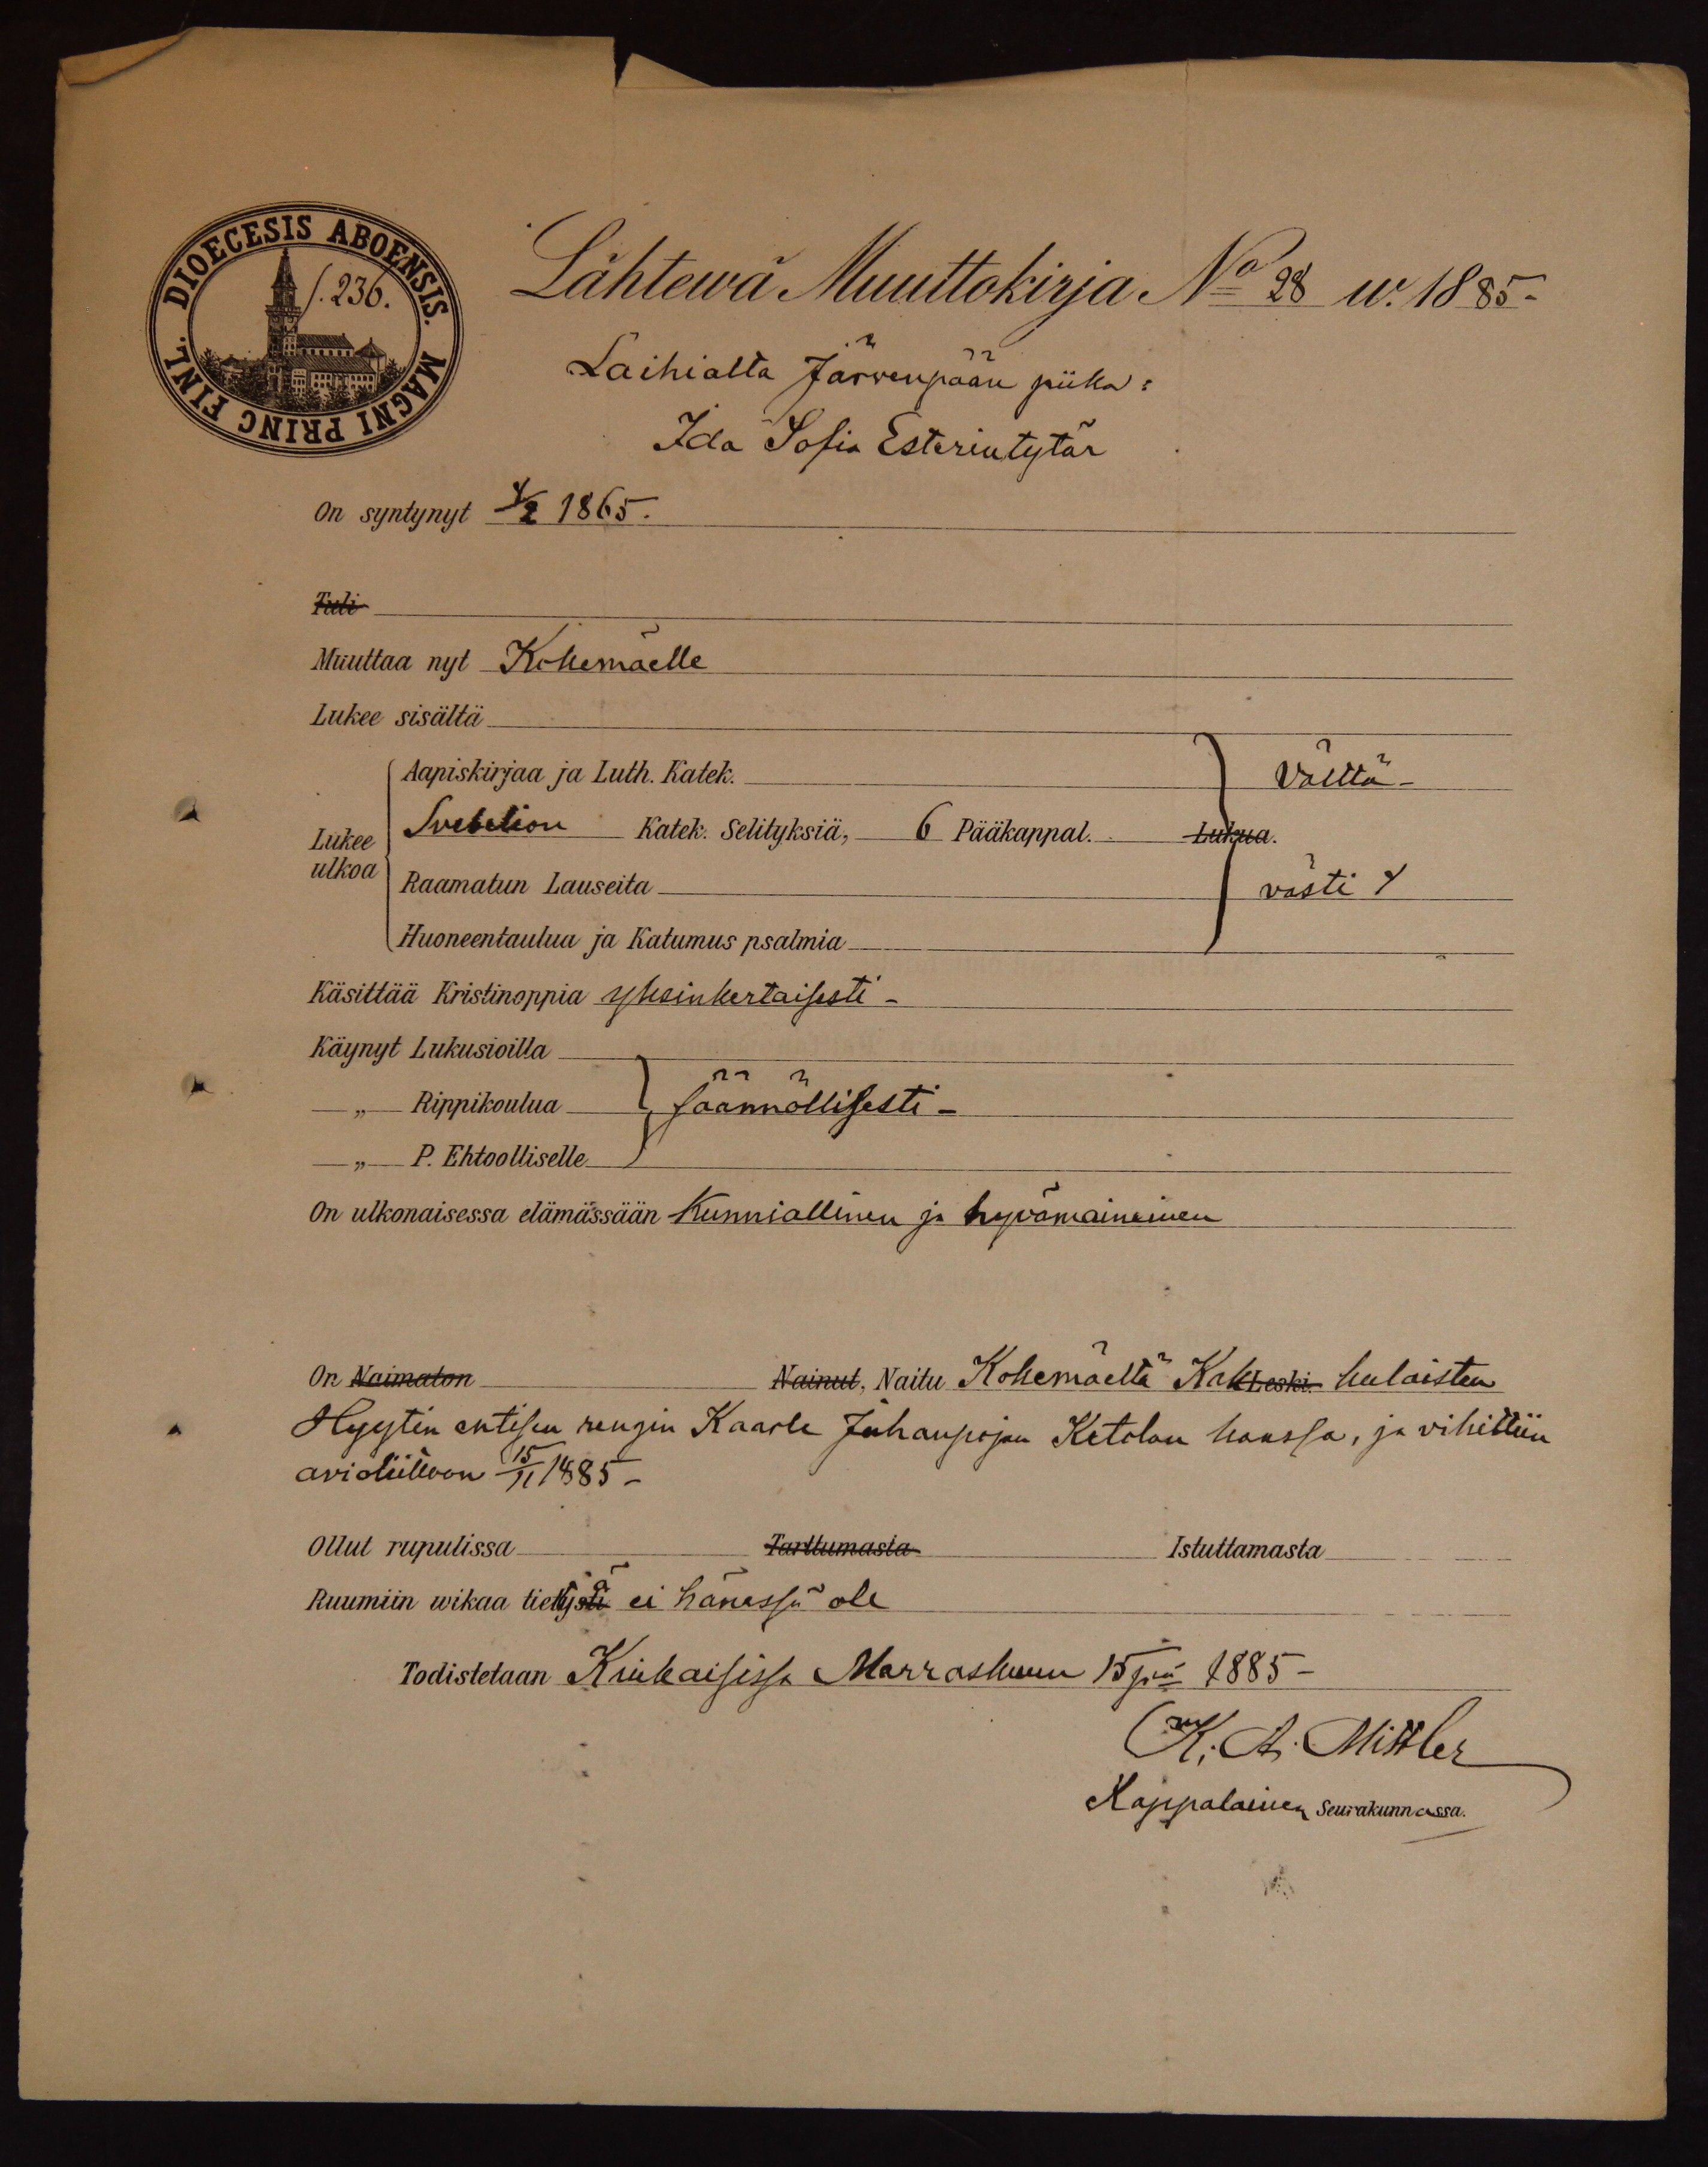 DIOECESIS ABOENSIS. MAGNI PRINC FINL.
f. 236.
Lähtewä Muuttokirja No 28 w. 1885-
Laihialta Järvenpään piika:
Ida Sofia Esterintytär
On syntynyt 4/2 1865.
Tuli
Muuttaa nyt Kokemäelle
Lukee sisältä
Aapiskirjaa ja Luth. Katek. välttä-
Lukee ulkoa
Svebelion Katek. Selityksiä, 6 Pääkappal. Lukua.
Raamatun Lauseita västi
Huoneentaulua ja Katumus psalmia
Käsittää Kristinoppia yksinkertaisesti -
Käynyt Lukusioilla
„ Rippikoulua säännöllisesti -
„ P. Ehtoolliselle
On ulkonaisessa elämässään Kunniallinen ja hyvämaineinen
On Naimaton Nainut, Naitu Kokemäeltä Kak Leski. kulaisten
Hyytin entisen rengin Kaarle Juhanpojan Ketolan kanssa, ja vihittiin
avioliittoon 15/11 1885-
Ollut rupulissa Tarttumasta Istuttamasta
Ruumiin wikaa tiettyä ei hänessä ole
Todistetaan Kiukaisissa Marraskuun 15 pnä 1885-
K. A. Mittler
Kappalainen Seurakunnassa.